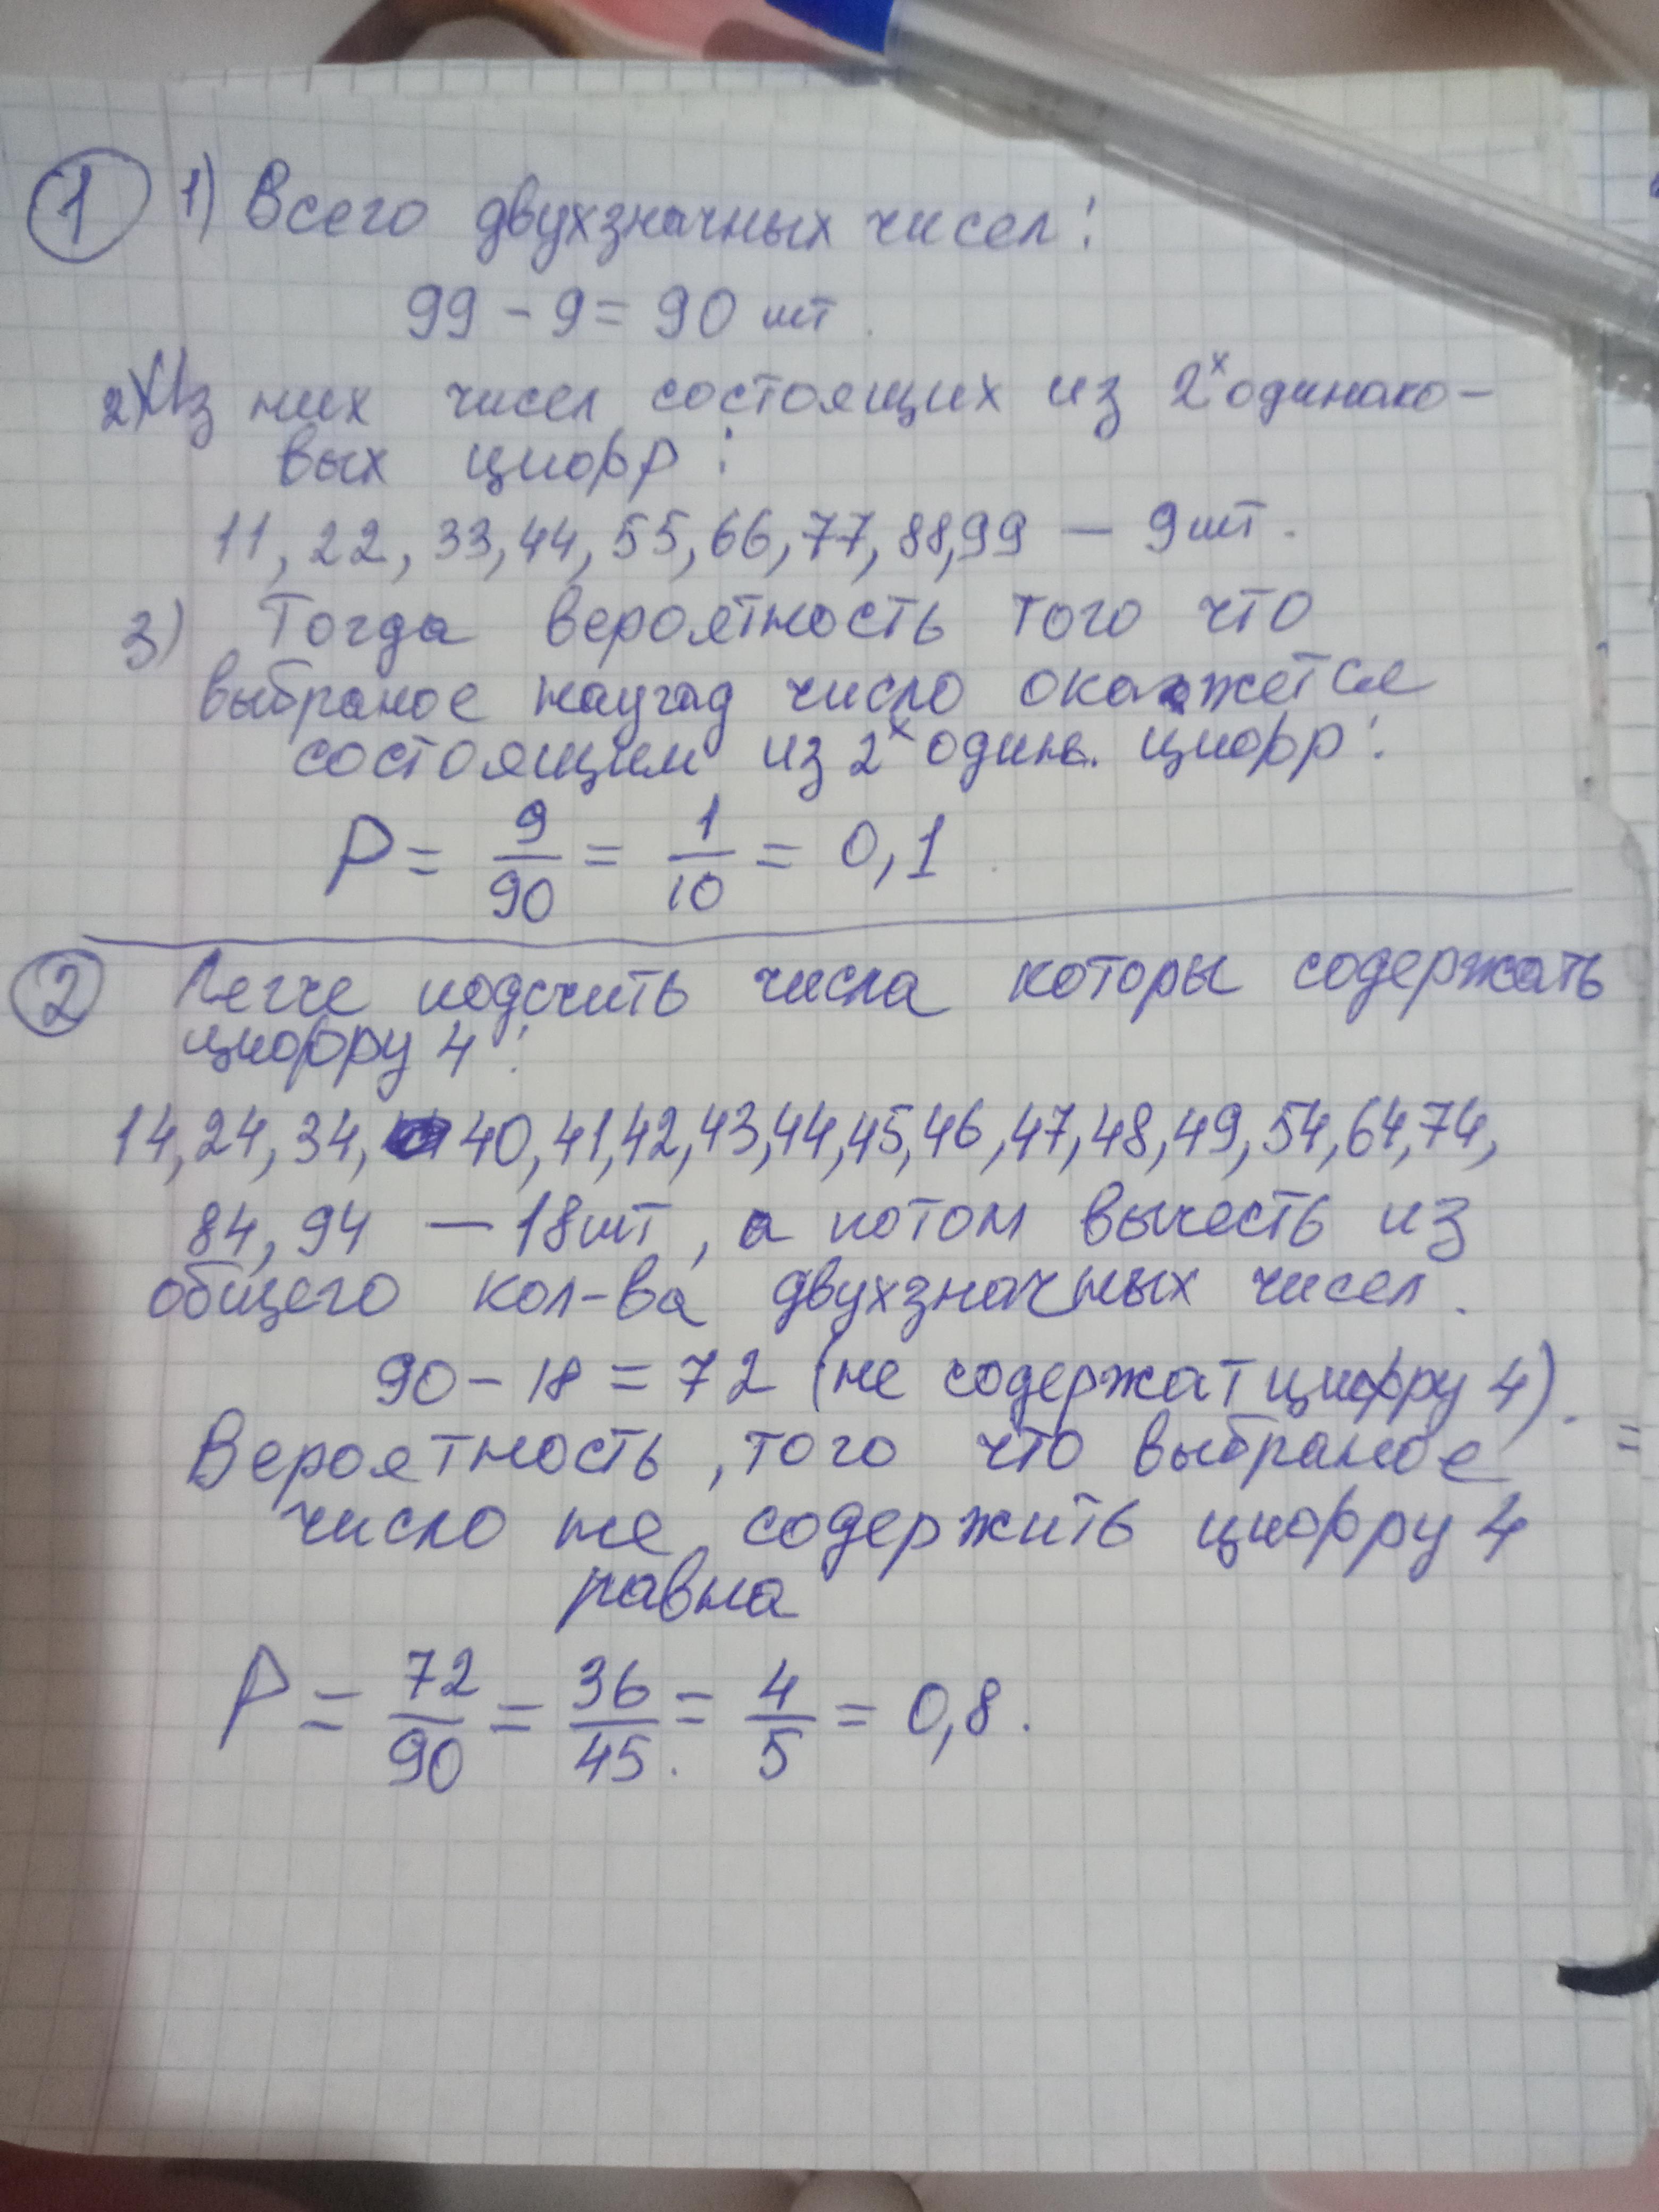 1 1) Всего двухзначных чисел:
99 - 9 = 90 шт.
2) Из них чисел состоящих из 2х одинако-
вых цифр:
11, 22, 33, 44, 55, 66, 77, 88, 99 — 9 шт.
3) Тогда вероятность того что
выбраное наугад число окажется
состоящим из 2х один. цифр:
P = 9/90 = 1/10 = 0,1
2 Легче подсчить числа которы содержать
цифру 4:
14, 24, 34, 40, 41, 42, 43, 44, 45, 46, 47, 48, 49, 54, 64, 74,
84, 94 — 18 шт, а потом вычесть из
общего кол-ва двухзначных чисел.
90 - 18 = 72 (не содержат цифру 4).
Вероятность, того что выбраное
число не содержить цифру 4
равна
P = 72/90 = 36/45 = 4/5 = 0,8.